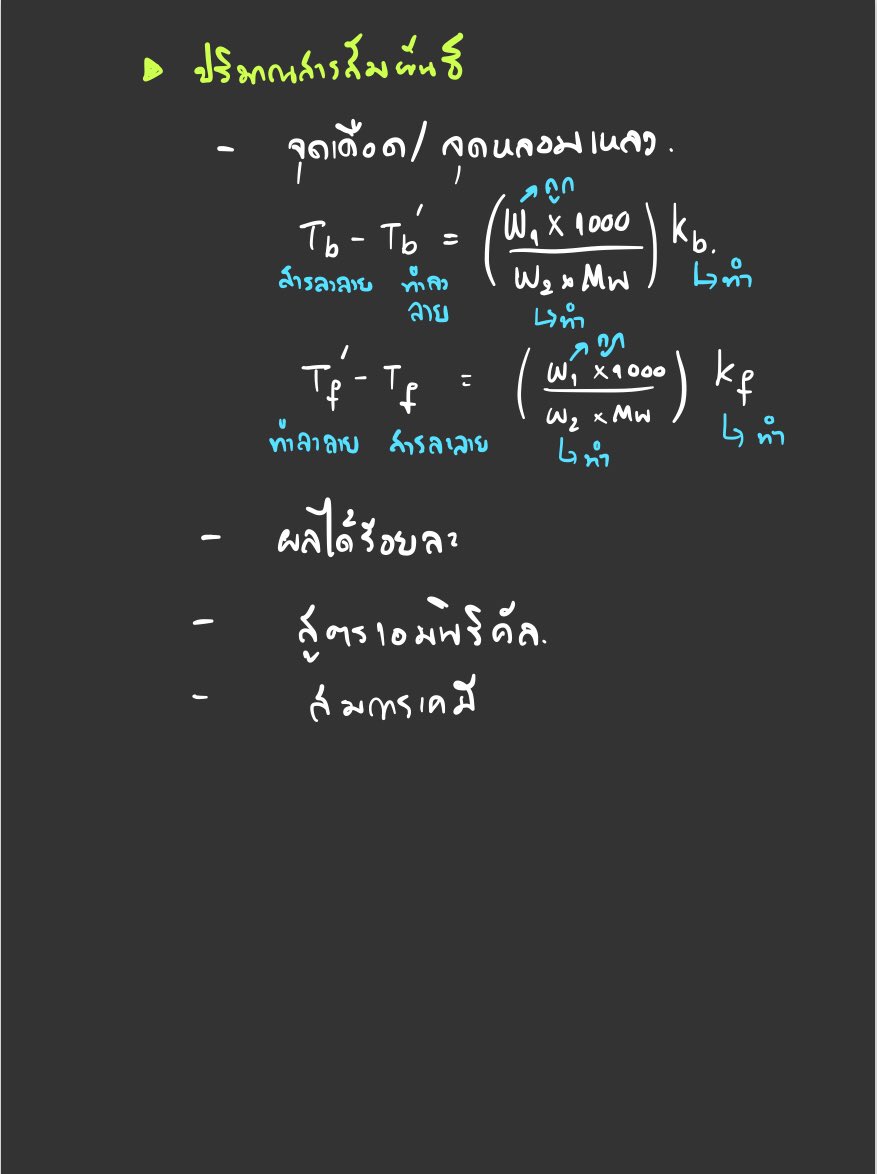 ▶ ปริมาณสารสัมพันธ์
- จุดเดือด/ จุดหลอมเหลว.
ถูก
Tb - Tb' = (W1 x 1000 / W2 x Mw) kb.
สารละลาย ทำละลาย ↳ทำ ↳ทำ
ถูก
Tf' - Tf = (W1 x 1000 / W2 x Mw) kf
ทำละลาย สารละลาย ↳ทำ ↳ทำ
- ผลได้ร้อยละ
- สูตรเอมพิริคัล.
- สมการเคมี